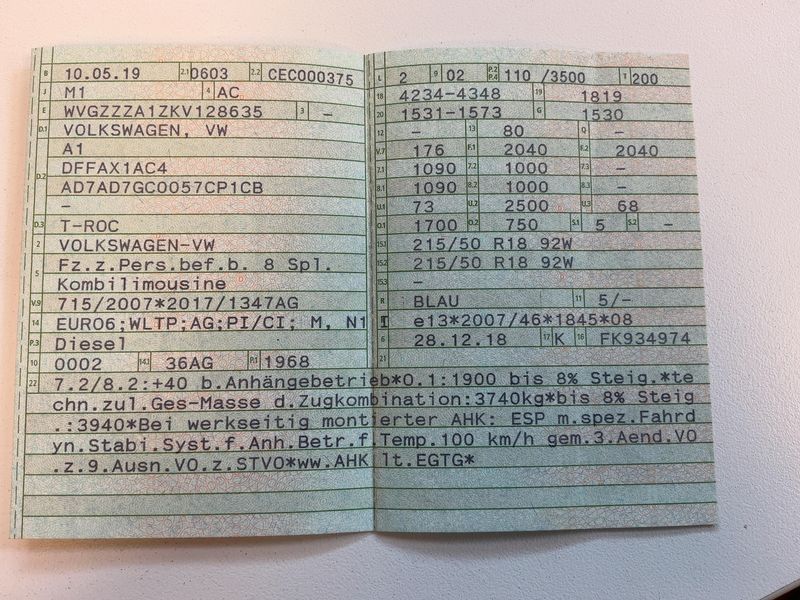 B 10.05.19 2.1 0603 2.2 CEC000375
J M1 4 AC
E WVGZZZA1ZKV128635 3 –
D.1 VOLKSWAGEN, VW
A1
D.2 DFFAX1AC4
AD7AD7GC0057CP1CB
–
D.3 T-ROC
2 VOLKSWAGEN-VW
5 Fz.z.Pers.bef.b. 8 Spl.
Kombilimousine
V.9 715/2007*2017/1347AG
14 EURO6;WLTP;AG;PI/CI; M, N1 I
P.3 Diesel
10 0002 14.1 36AG P.1 1968
L 2 9 02 P.2 P.4 110 /3500 T 200
18 4234-4348 19 1819
20 1531-1573 G 1530
12 – 13 80 Q –
V.7 176 F.1 2040 F.2 2040
7.1 1090 7.2 1000 7.3 –
8.1 1090 8.2 1000 8.3 –
U.1 73 U.2 2500 U.3 68
O.1 1700 O.2 750 S.1 5 S.2 –
15.1 215/50 R18 92W
15.2 215/50 R18 92W
15.3 –
R BLAU 11 5/–
e13*2007/46*1845*08
6 28.12.18 17 K 16 FK934974
21
22 7.2/8.2:+40 b.Anhängebetrieb*O.1:1900 bis 8% Steig.*te
chn.zul.Ges-Masse d.Zugkombination:3740kg*bis 8% Steig
.:3940*Bei werkseitig montierter AHK: ESP m.spez.Fahrd
yn.Stabi.Syst.f.Anh.Betr.f.Temp.100 km/h gem.3.Aend.VO
.z.9.Ausn.VO.z.STVO*ww.AHK lt.EGTG*